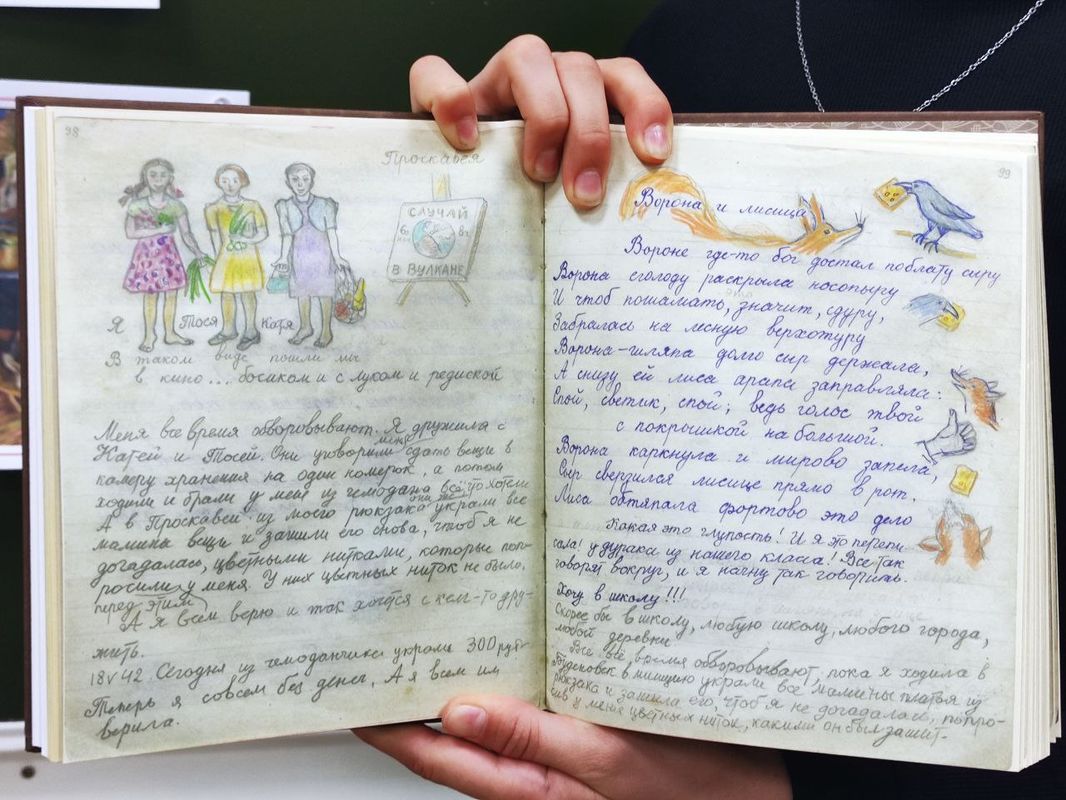 98
Проскавея
СЛУЧАЙ
6ч 8ч
В ВУЛКАНЕ
Я Тося Катя
В таком виде пошли мы
в кино... босиком и с луком и редиской
Меня всё время обворовывают. Я дружила с
Катей и Тосей. Они уговорили меня сдать вещи в
камеру хранения на один номерок, а потом
ходили и брали у меня из чемодана всё что хотели
А в Проскавеи из моего рюкзака они же украли все
мамины вещи и зашили его снова, чтоб я не
догадалась, цветными нитками, которые поп-
росили у меня. У них цветных ниток не было.
перед этим
А я всем верю и так хочется с кем-то дру-
жить.
18 V 42 Сегодня из чемоданчика украли 300 руб.
Теперь я совсем без денег. А я всем им
верила.
99
Ворона и лисица
Вороне где-то бог достал поблату сыру
Ворона сголоду раскрыла носопыру
И чтоб пошамать, это значит, сдуру,
Забралась на лесную верхотуру
Ворона-шляпа долго сыр держала,
А снизу ей лиса арапа заправляла:
Спой, светик, спой; ведь голос твой
с покрышкой на большой.
Ворона каркнула и мирово запела,
Сыр сверзился лисице прямо в рот.
Лиса обтяпала фортово это дело
Какая это глупость! И я это перепи-
сала! у дурака из нашего класса! Все так
говорят вокруг, и я начну так говорить.
Хочу в школу!!!
Скорее бы в школу, любую школу, любого города,
любой деревни
Все всё время обворовывают, пока я ходила в
Буденовск в милицию украли все мамины платья из
рюкзака и зашили его, чтоб я не догадалась, попро-
сив у меня цветных ниток, какими он был зашит.